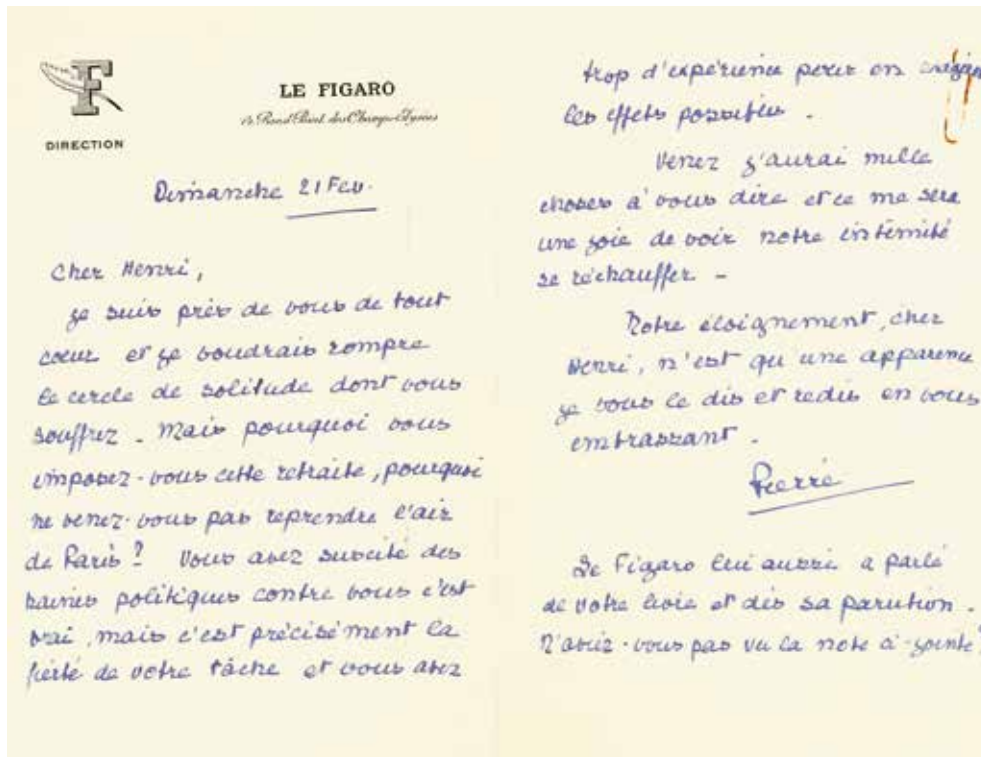 F
DIRECTION
LE FIGARO
14 Rond Point des Champs-Elysées
Dimanche 21 Fev.
Cher Henri,
je suis près de vous de tout
cœur et je voudrais rompre
le cercle de solitude dont vous
souffrez. Mais pourquoi vous
imposez-vous cette retraite, pourquoi
ne venez-vous pas reprendre l'air
de Paris ? Vous avez suscité des
haines politiques contre vous c'est
vrai, mais c'est précisément la
fierté de votre tâche et vous avez
trop d'expérience pour en
les effets possibles.
Venez j'aurai mille
choses à vous dire et ce me sera
une joie de voir notre intimité
se réchauffer -
Notre éloignement, cher
Henri, n'est qu'une apparence
je vous le dis et redis en vous
embrassant.
Pierre
Le Figaro lui aussi a parlé
de votre livre et dès sa parution.
N'aviez-vous pas vu la note ci-jointe ?